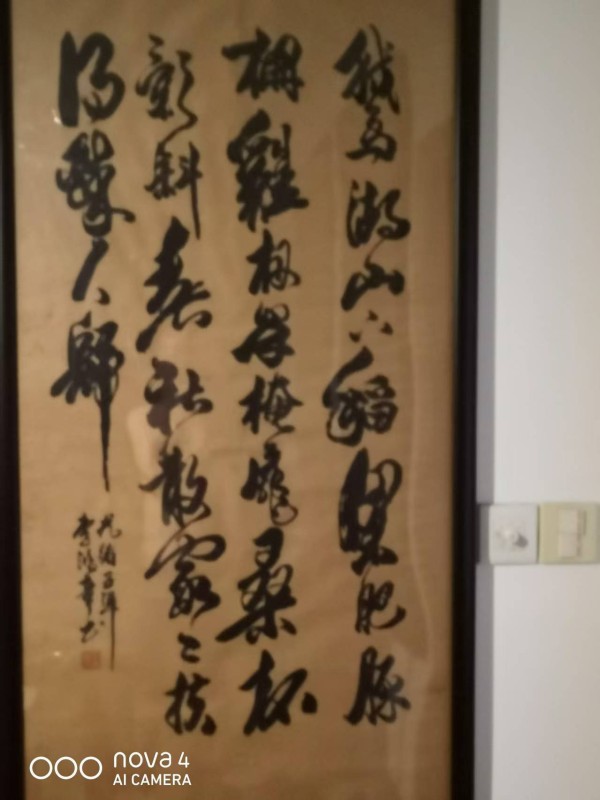 鵝湖山下稻粱肥豚
柵雞栖半掩扉桑柘
影斜春社散家〻扶
得醉人歸
光緒
李鴻章书
nova 4
AI CAMERA